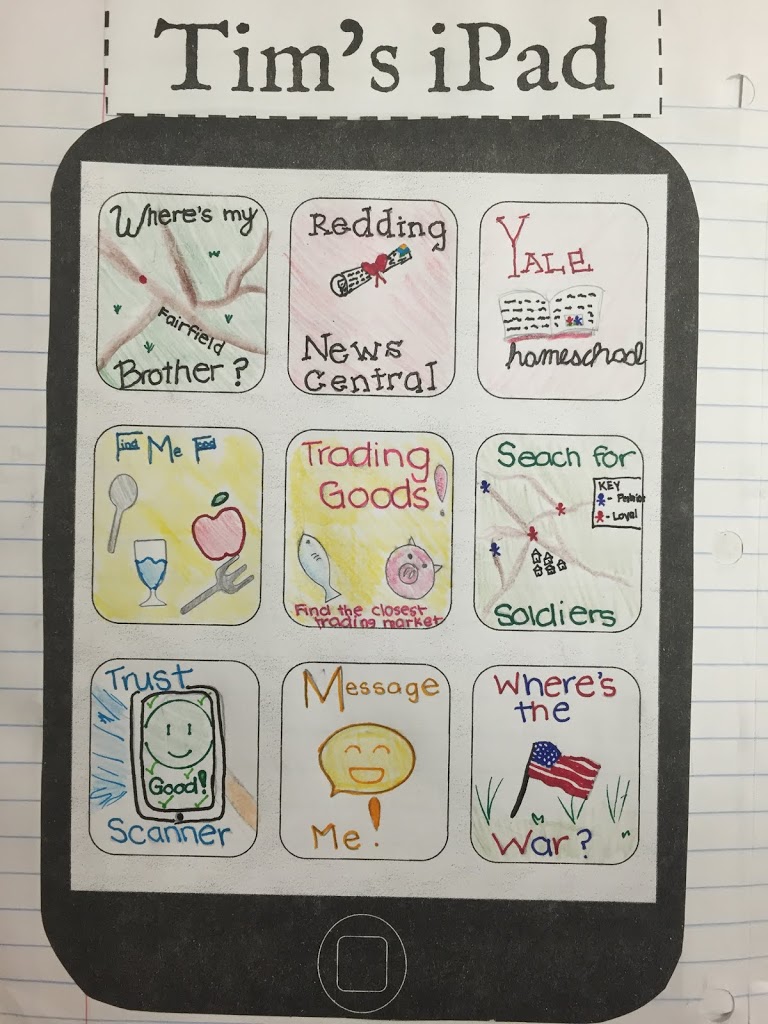 Tim's iPad
Where's my
Fairfield
Brother?
Redding
News
Central
Yale
homeschool
Find Me Food
Trading
Goods!
Find the closest
trading market
Seach for
KEY
- Loyal
Soldiers
Trust
Good!
Scanner
Message
Me!
Where's
the
War?